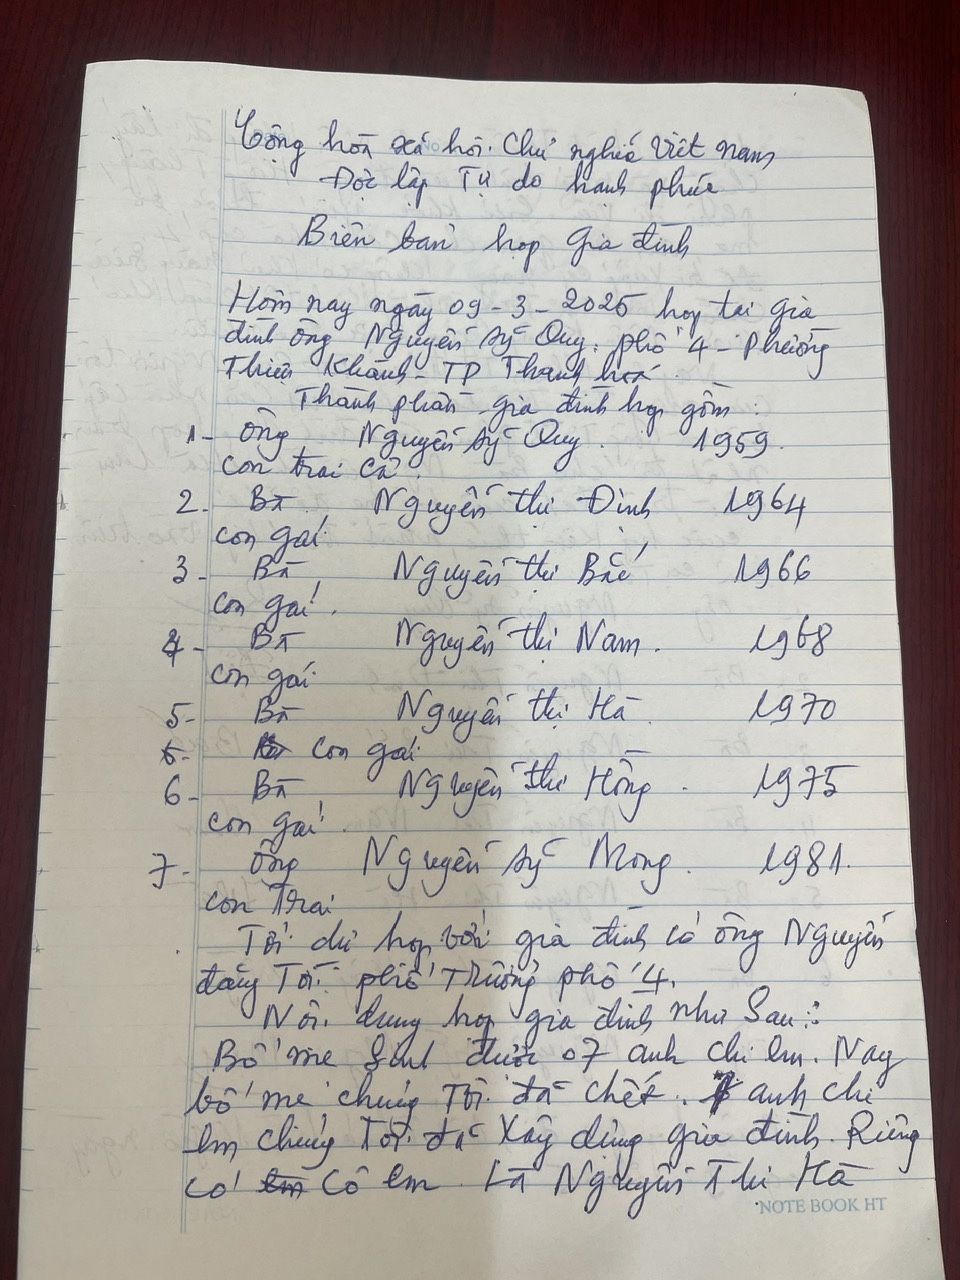 Cộng hòa xã hội Chủ nghĩa Việt nam
Độc lập Tự do hạnh phúc
Biên bản họp gia đình
Hôm nay ngày 09-3-2025 họp tại gia
đình ông Nguyễn Sỹ Quy. phố 4 - Phường
Thiệu Khánh - TP Thanh hoá
Thành phần gia đình họp gồm:
1- Ông Nguyễn Sỹ Quy. 1959.
con trai cả.
2- Bà Nguyễn thị Định 1964
con gái
3- Bà Nguyễn thị Bắc 1966
con gái.
4- Bà Nguyễn thị Nam. 1968
con gái
5- Bà Nguyễn thị Hà. 1970
6- con gái
6- Bà Nguyễn thị Hồng. 1975
con gái.
7- Ông Nguyễn Sỹ Mong. 1981.
con Trai
Tới dự họp với gia đình có ông Nguyễn
đăng Tới phố Trưởng phố 4.
Nội dung họp gia đình như Sau:
Bố mẹ Sinh được 07 anh chị em. Nay
bố mẹ chúng Tôi đã chết. anh chị
em chúng Tôi đã Xây dựng gia đình. Riêng
có em cô em Là Nguyễn Thị Hà
NOTE BOOK HT